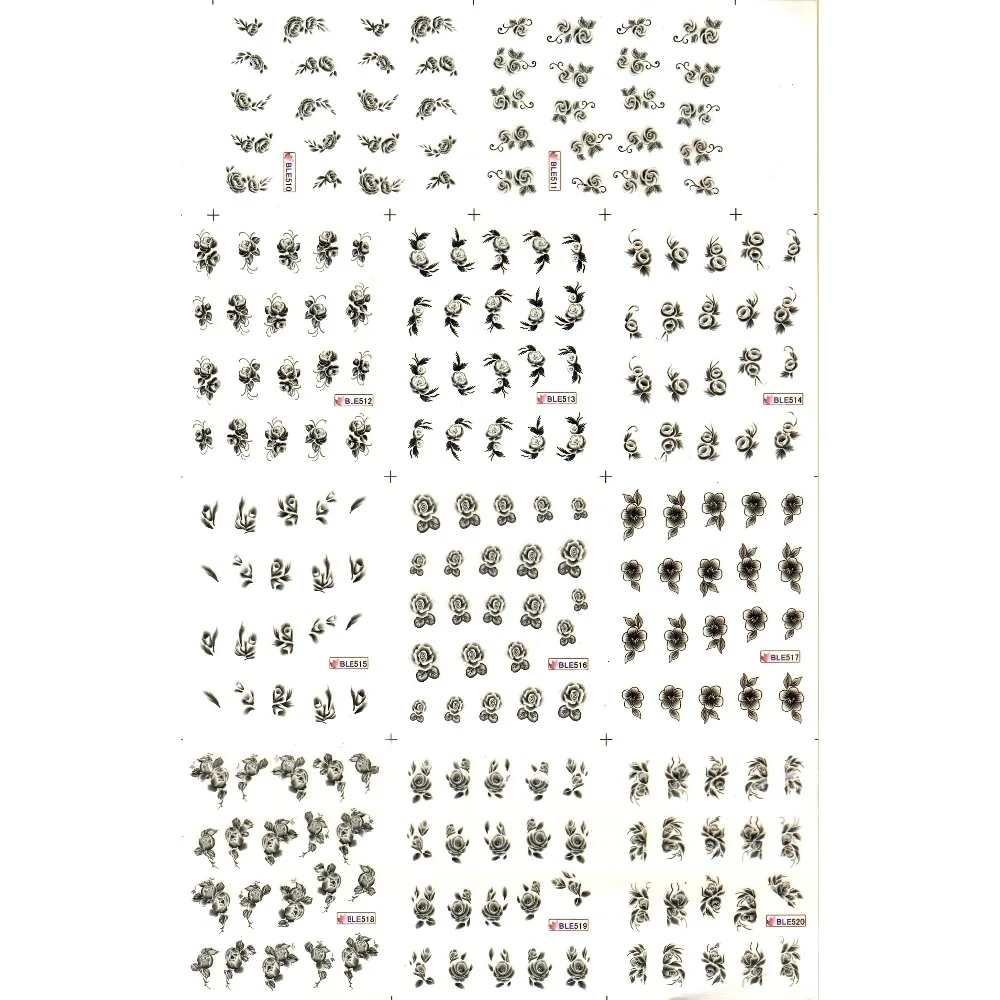 BLE510
BLE511
BLE512
BLE513
BLE514
BLE515
BLE516
BLE517
BLE518
BLE519
BLE520